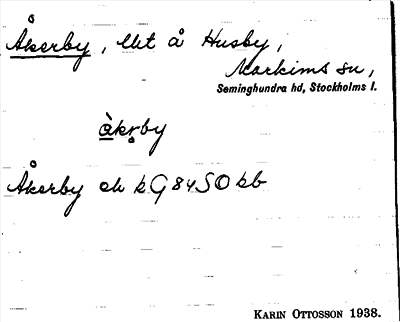 Åkerby, lht å Husby,
Markims sn,
Seminghundra hd, Stockholms l.
àkr̥by
Åkerby ek kG 84 SO kb
KARIN OTTOSSON 1938.